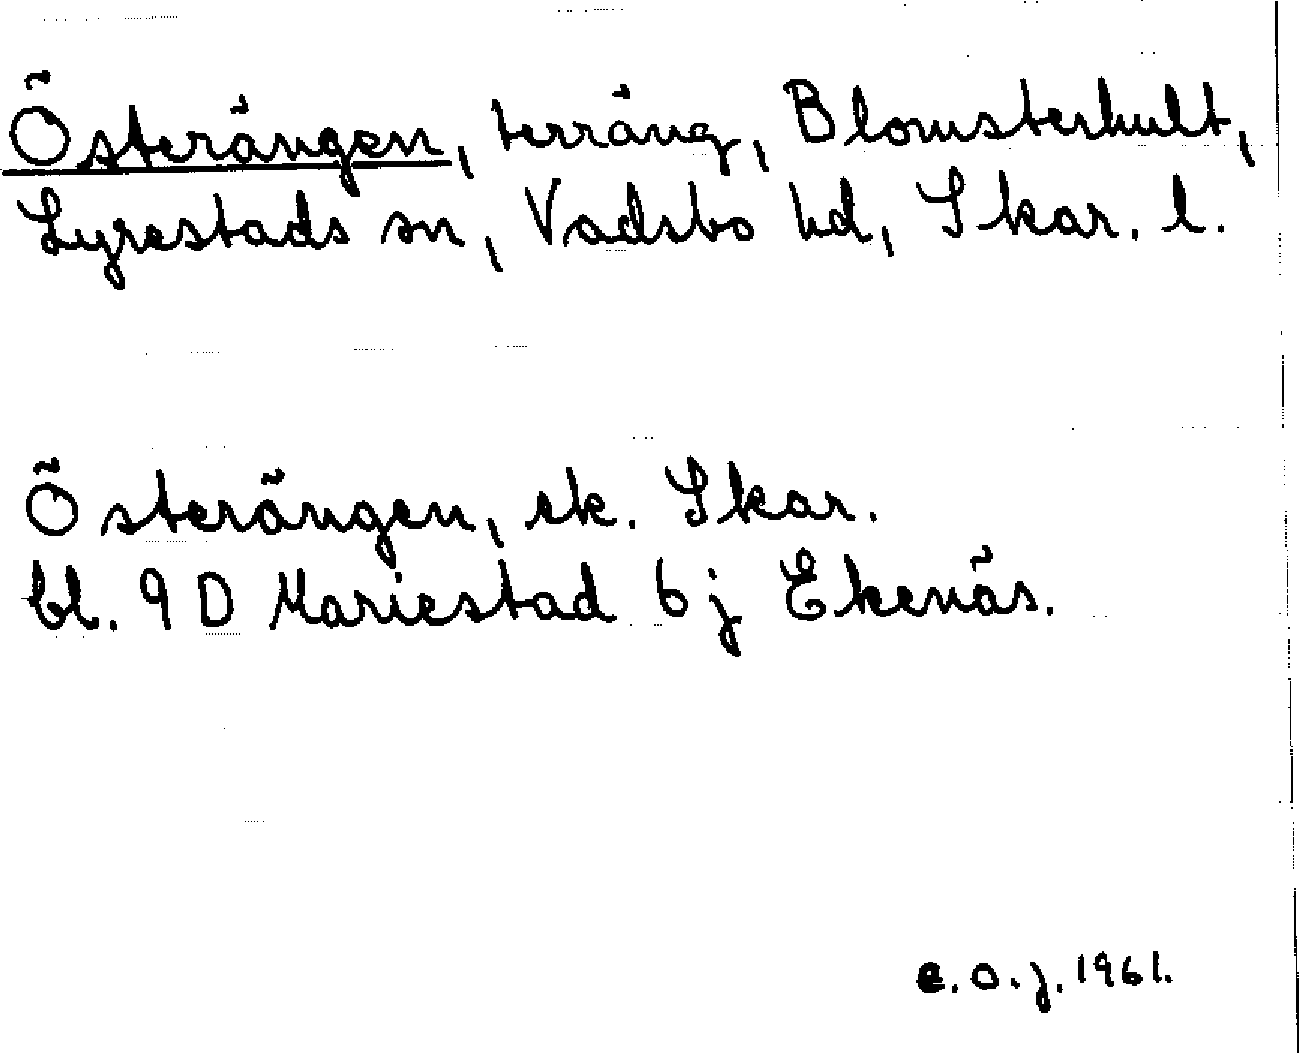 Österängen, terräng, Blomsterhult,
Lyrestads sn, Vadsbo hd, Skar. l.
Österängen, ek. Skar.
bl. 9 D Mariestad 6 j Ekenäs.
e. o. j. 1961.